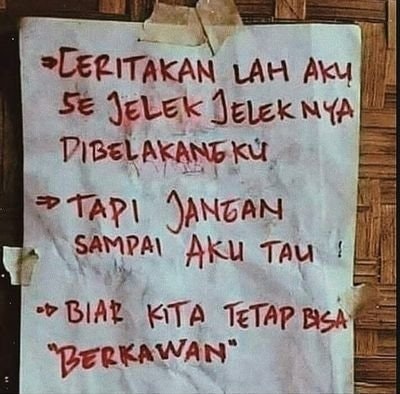 ⇒CERITAKAN LAH AKU
SE JELEK JELEK NYA
DIBELAKANGKU
⇒ TAPI JANGAN
SAMPAI AKU TAU !
⇒ BIAR KITA TETAP BISA
"BERKAWAN"